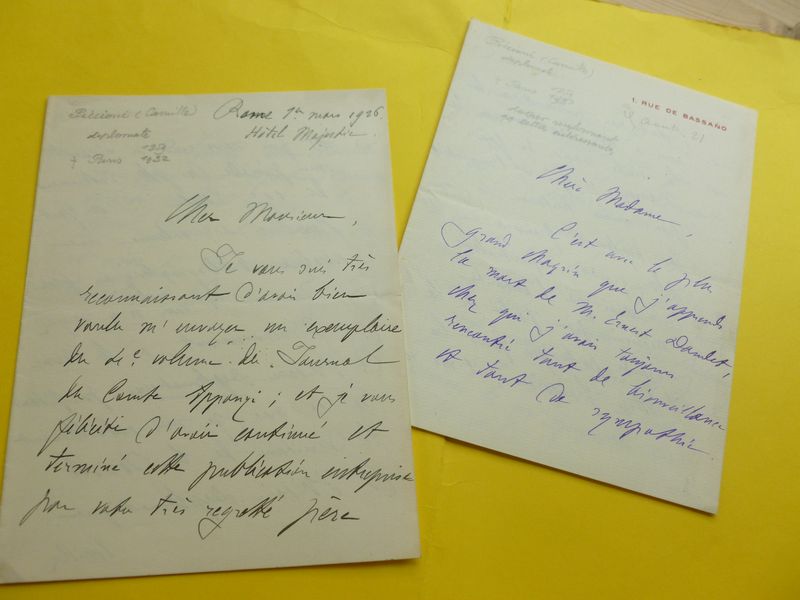 Piccioni (Camille)
diplomate
Paris 1932
Rome 1er mars 1926
Hôtel Majestic.
Cher Monsieur,
Je vous suis très
reconnaissant d'avoir bien
voulu m'envoyer un exemplaire
du 4e volume du Journal
du Comte Apponyi ; et je vous
félicite d'avoir continué et
terminé cette publication entreprise
par votre très regretté père
Piccioni (Camille)
diplomate
Paris
1. RUE DE BASSANO
21
Chère Madame,
C'est avec le plus
grand chagrin que j'apprends
la mort de M. Ernest Daudet,
chez qui j'avais toujours
rencontré tant de bienveillance
et tant de sympathie.